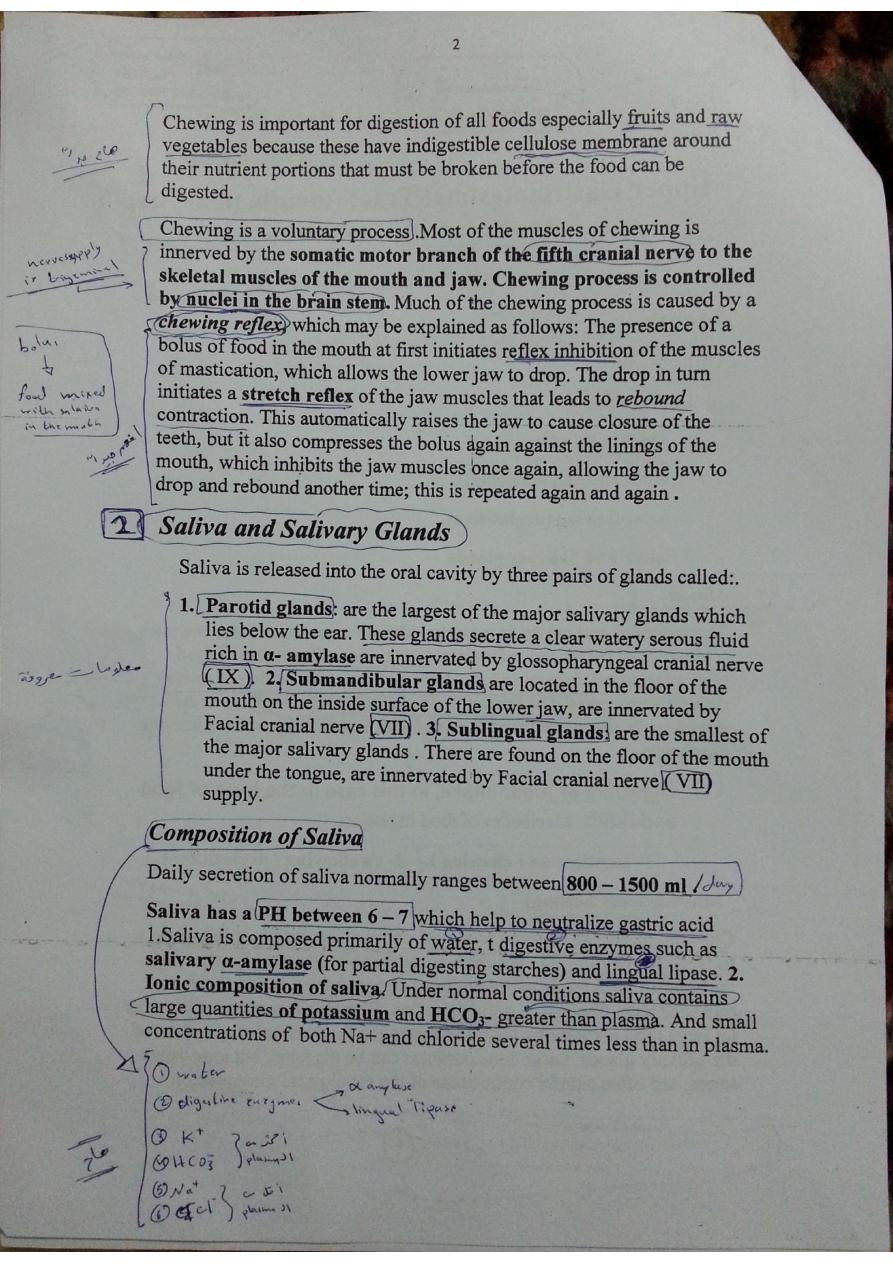 2
Chewing is important for digestion of all foods especially fruits and raw
vegetables because these have indigestible cellulose membrane around
their nutrient portions that must be broken before the food can be
digested.
Chewing is a voluntary process .Most of the muscles of chewing is
innerved by the somatic motor branch of the fifth cranial nerve to the
skeletal muscles of the mouth and jaw. Chewing process is controlled
by nuclei in the brain stem. Much of the chewing process is caused by a
chewing reflex, which may be explained as follows: The presence of a
bolus of food in the mouth at first initiates reflex inhibition of the muscles
of mastication, which allows the lower jaw to drop. The drop in turn
initiates a stretch reflex of the jaw muscles that leads to rebound
contraction. This automatically raises the jaw to cause closure of the
teeth, but it also compresses the bolus again against the linings of the
mouth, which inhibits the jaw muscles once again, allowing the jaw to
drop and rebound another time; this is repeated again and again .
nerve supply
is trigeminal
bolus
food mixed
with saliva
in the mouth
2 Saliva and Salivary Glands
Saliva is released into the oral cavity by three pairs of glands called:.
1. Parotid glands: are the largest of the major salivary glands which
lies below the ear. These glands secrete a clear watery serous fluid
rich in α- amylase are innervated by glossopharyngeal cranial nerve
( IX ). 2. Submandibular glands are located in the floor of the
mouth on the inside surface of the lower jaw, are innervated by
Facial cranial nerve (VII) . 3. Sublingual glands: are the smallest of
the major salivary glands . There are found on the floor of the mouth
under the tongue, are innervated by Facial cranial nerve ( VII)
supply.
معلومات معروفة
Composition of Saliva
Daily secretion of saliva normally ranges between 800 – 1500 ml /day
Saliva has a PH between 6 – 7 which help to neutralize gastric acid
1.Saliva is composed primarily of water, t digestive enzymes such as
salivary α-amylase (for partial digesting starches) and lingual lipase. 2.
Ionic composition of saliva. Under normal conditions saliva contains
large quantities of potassium and HCO3- greater than plasma. And small
concentrations of both Na+ and chloride several times less than in plasma.
① water
② digestive enzymes α amylase
lingual lipase
③ K+
④ HCO3-
اكثر من
الـ plasma
⑤ Na+
⑥ Cl-
اقل من
الـ plasma